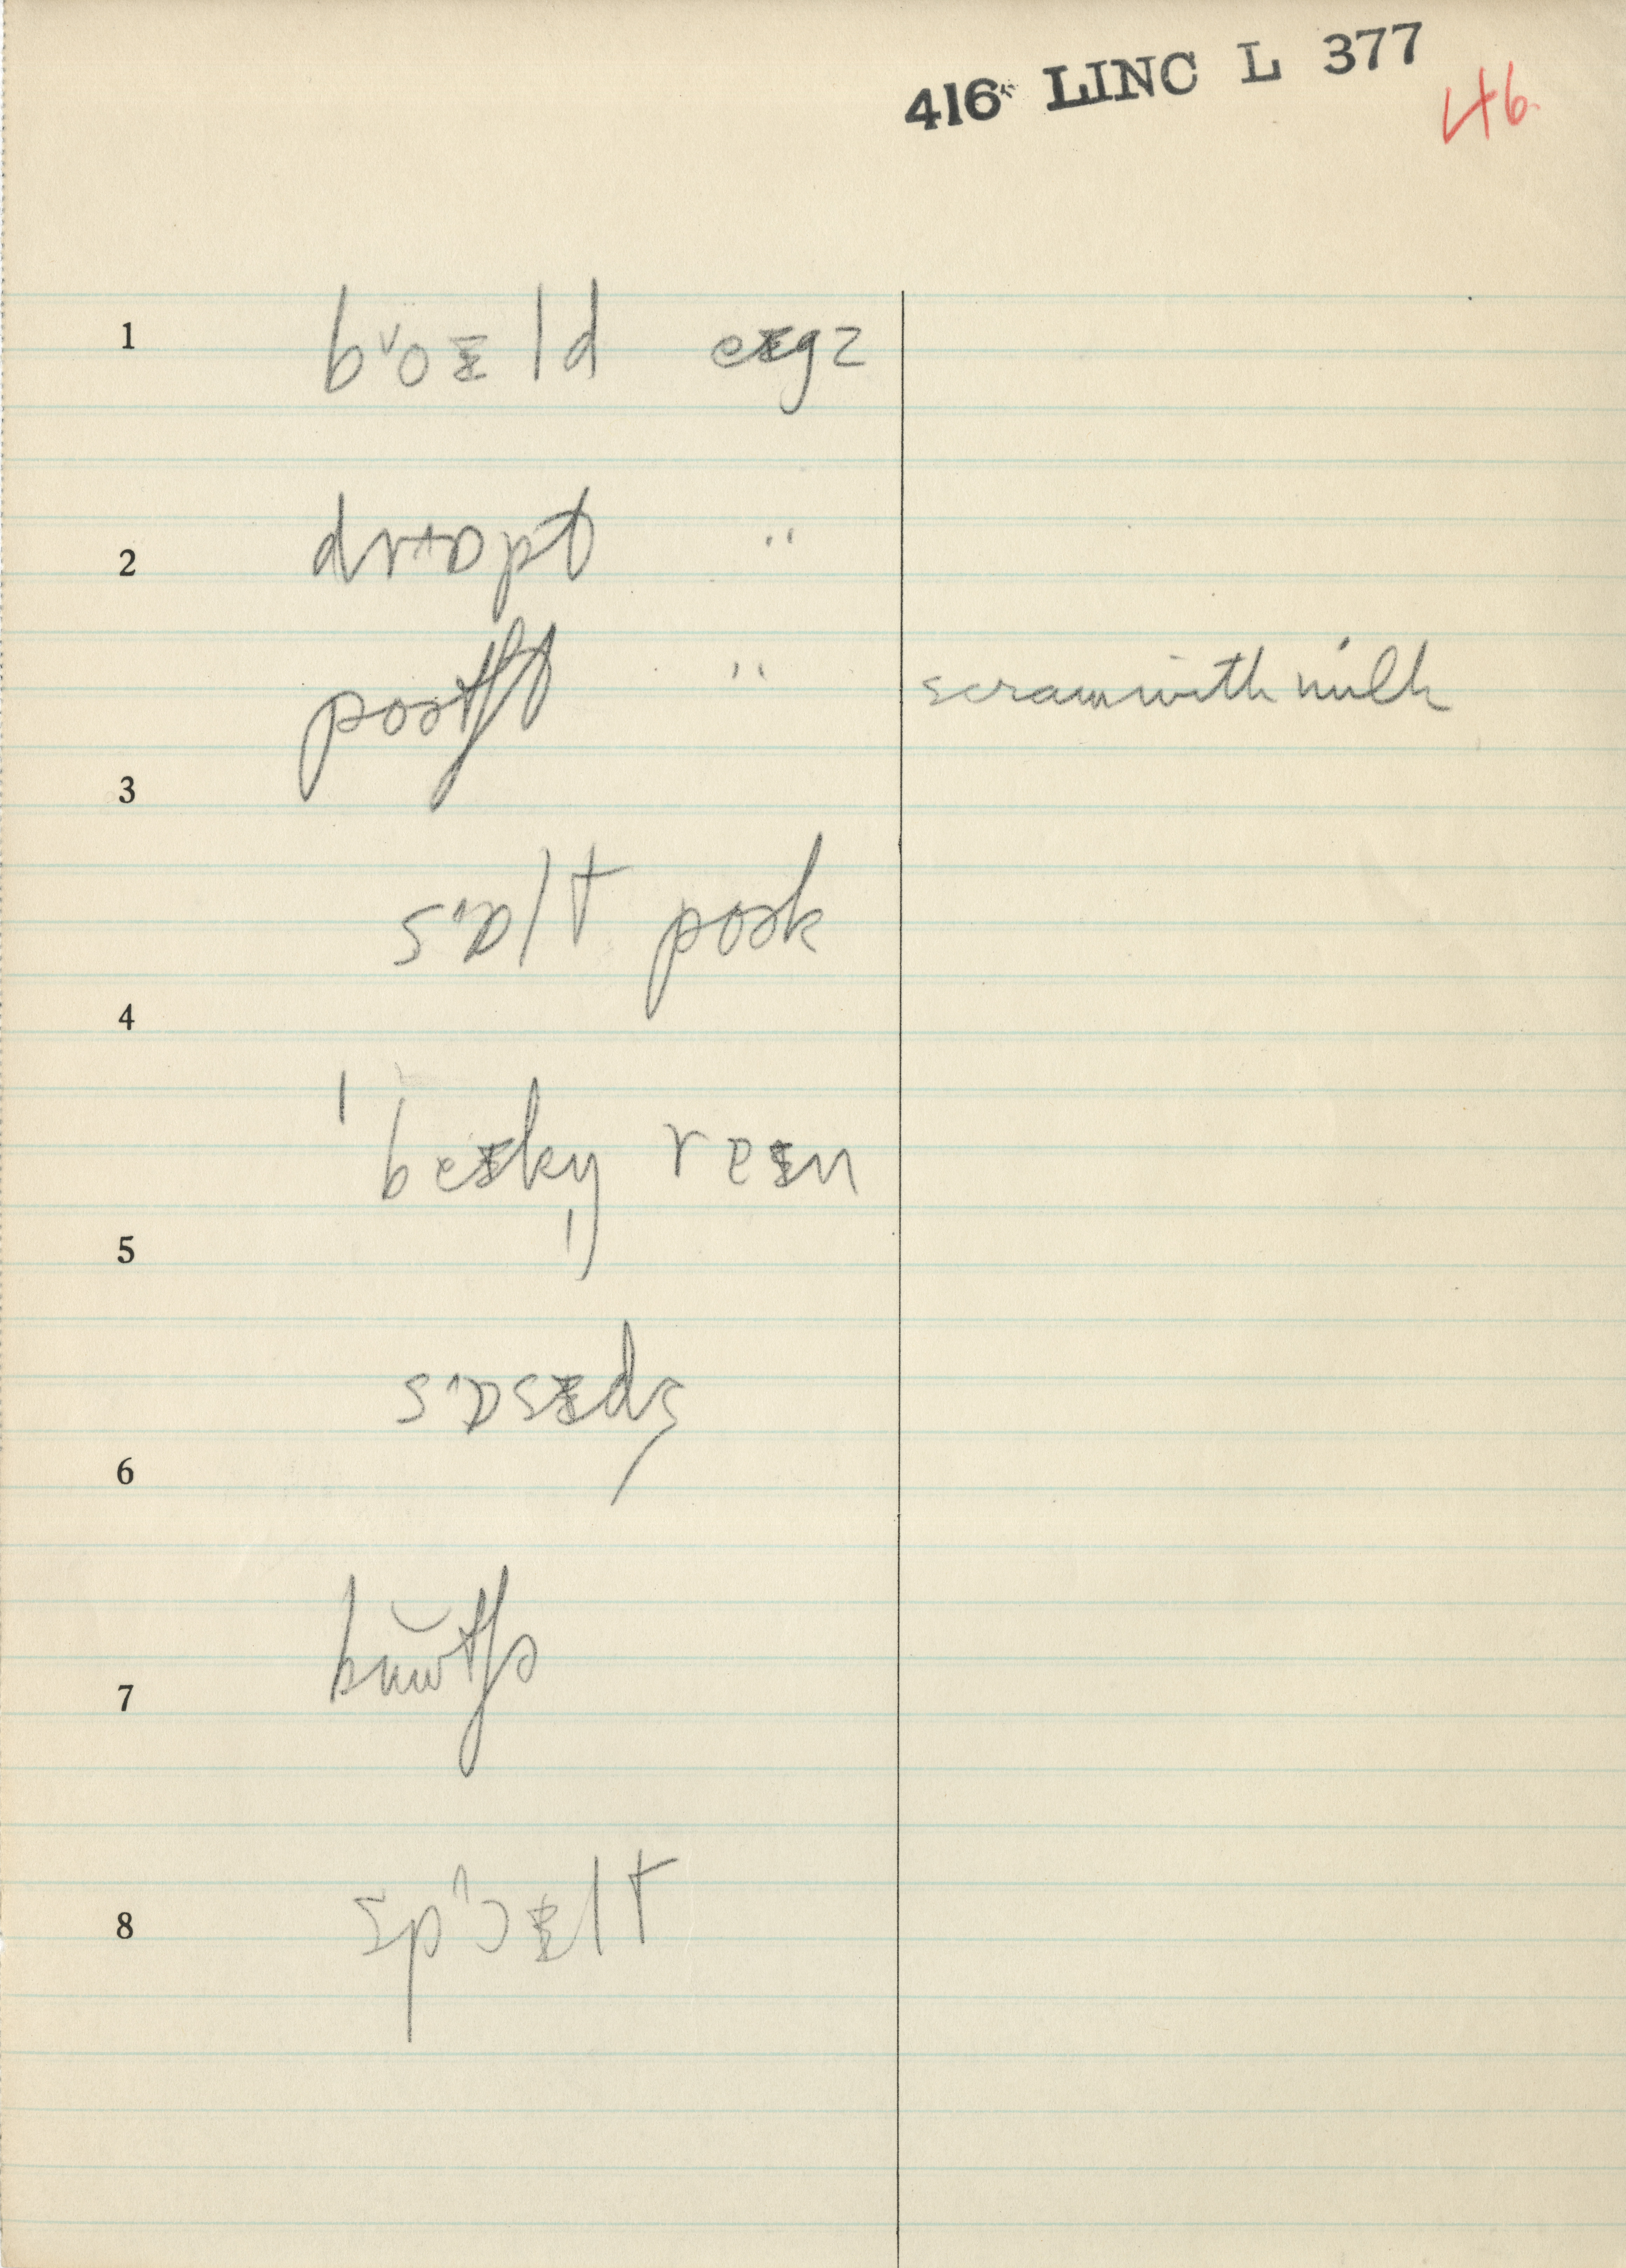 416 LINC L 377
46.
1 bˇoɪld eɪgz
2 dr^ɒpt "
poətʃt " scram with milk
3
s^ɒlt poək
4
ˈbeɪkŋ̩ reɪn
5
s^ɒsɪdʒ
6
bŭtʃə
7
8 sp^ɔɪlt